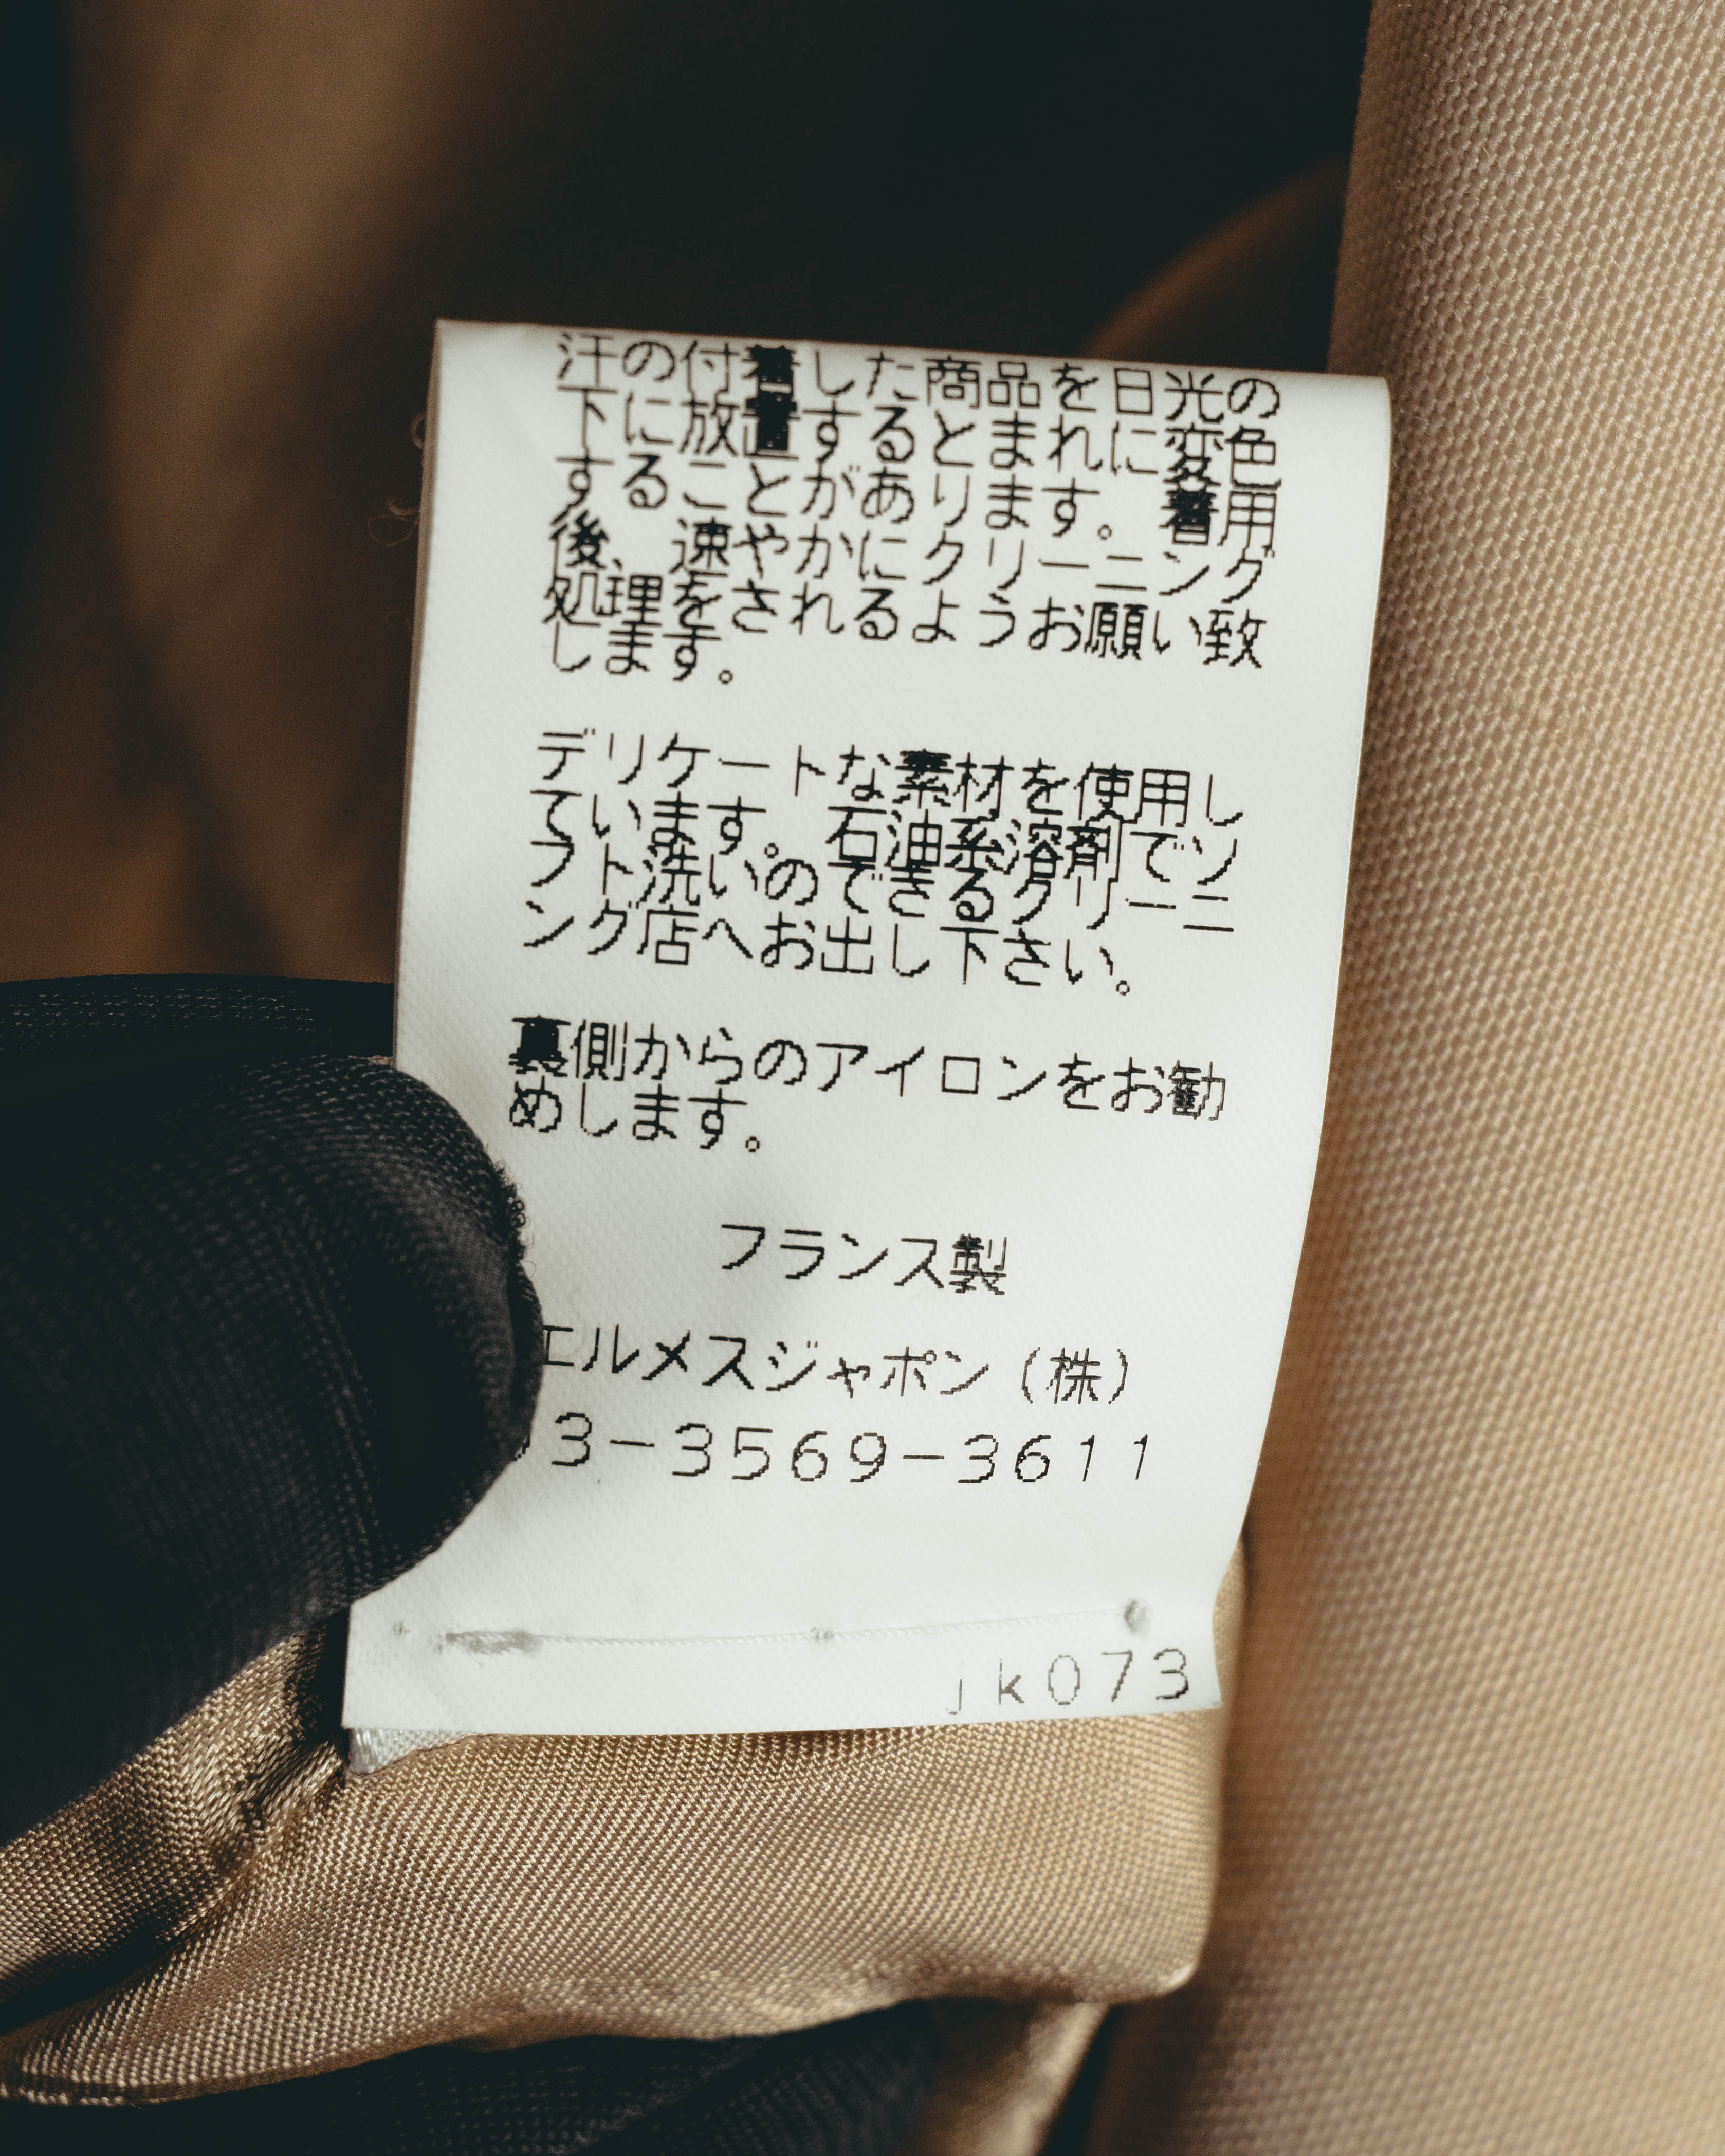 汗の付着した商品を日光の
下に放置するとまれに変色
することがあります。着用
後、速やかにクリーニング
処理をされるようお願い致
します。
デリケートな素材を使用し
ています。石油系溶剤でソ
フト洗いのできるクリーニ
ング店へお出し下さい。
裏側からのアイロンをお勧
めします。
フランス製
エルメスジャポン(株)
3-3569-3611
jk073